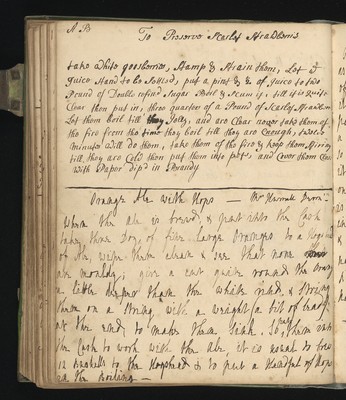 A B
To Preserve Scarlet Strawberris
take white goosberries, Stamp & Strain them, Let ye
Juice Stand to be Settled, put a pint & ½ of Juice to two
Pound of Double refin'd Sugar Boile & Scum it, till it is quite
Clear then put in, three quarters of a Pound of Scarlet Strawberris
Let them boil till they Jelly, and are Clear now take them of
the fire from the time they boil till they are Enough, twelve
Minutes will do them, take them of the fire & keep them Stiring
till they are Cold then put them into pott's and Cover them Close
with Paper dip'd in Brandy
Orange Ale with Hops — Mr
When the ale is brew'd, & put into the Cask
take three Doz. of fine large Oranges to a Hogshd
of Ale, wipe them clean & see that none
are mouldy, give a cut quite round the Orange
a little deeper than the white rind, & String
them on a String with a weight a bit of lead
at the end to make them Sink. So put them into
the Cask to work with the ale, it is usual to brew
12 bushells to the Hogshead & to put a Handful of Hops
in the boiling —